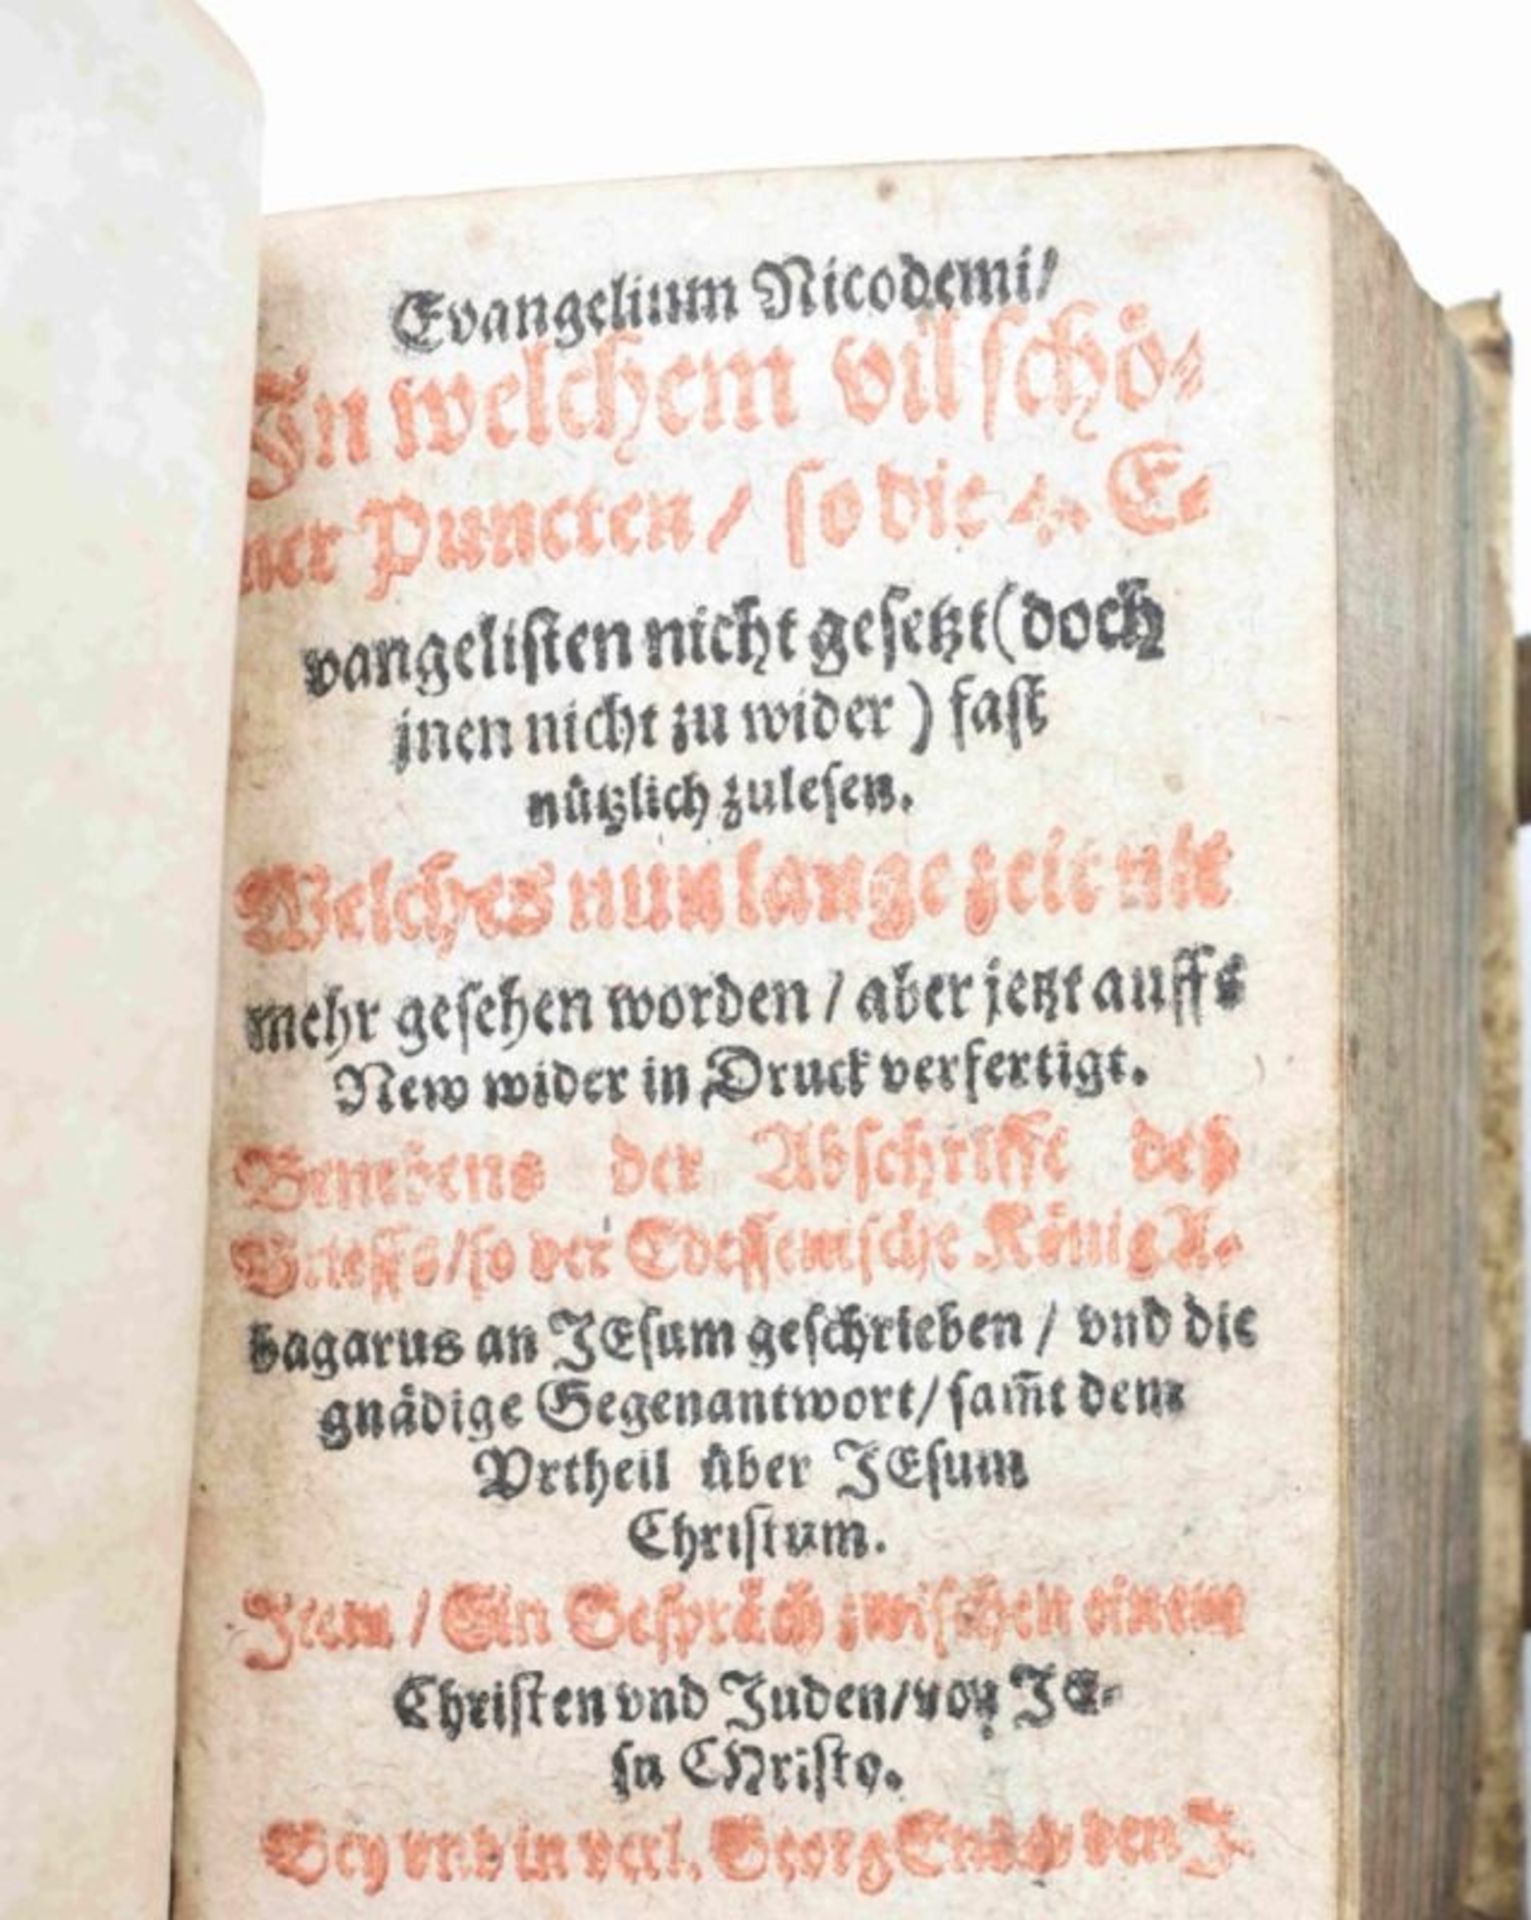 Evangelium Nicodemi/
In welchem vil schö⸗
ner Puncten/ so die 4. E⸗
vangelisten nicht gesetzt (doch
jnen nicht zu wider) fast
nützlich zulesen.
Welches nun lange zeit nit
mehr gesehen worden / aber jetzt auffs
New wider in Druck verfertigt.
Benebens der Abschrifft deß
Brieffs/ so der Edessenische König A⸗
bagarus an JEsum geschrieben / vnd die
gnädige Gegenantwort/ sam̃t dem
Vrtheil über JEsum
Christum.
Item / Ein Gespräch zwischen einem
Christen vnd Juden/ von JE⸗
su CHristo.
Bey vnd in verl. Georg den J.